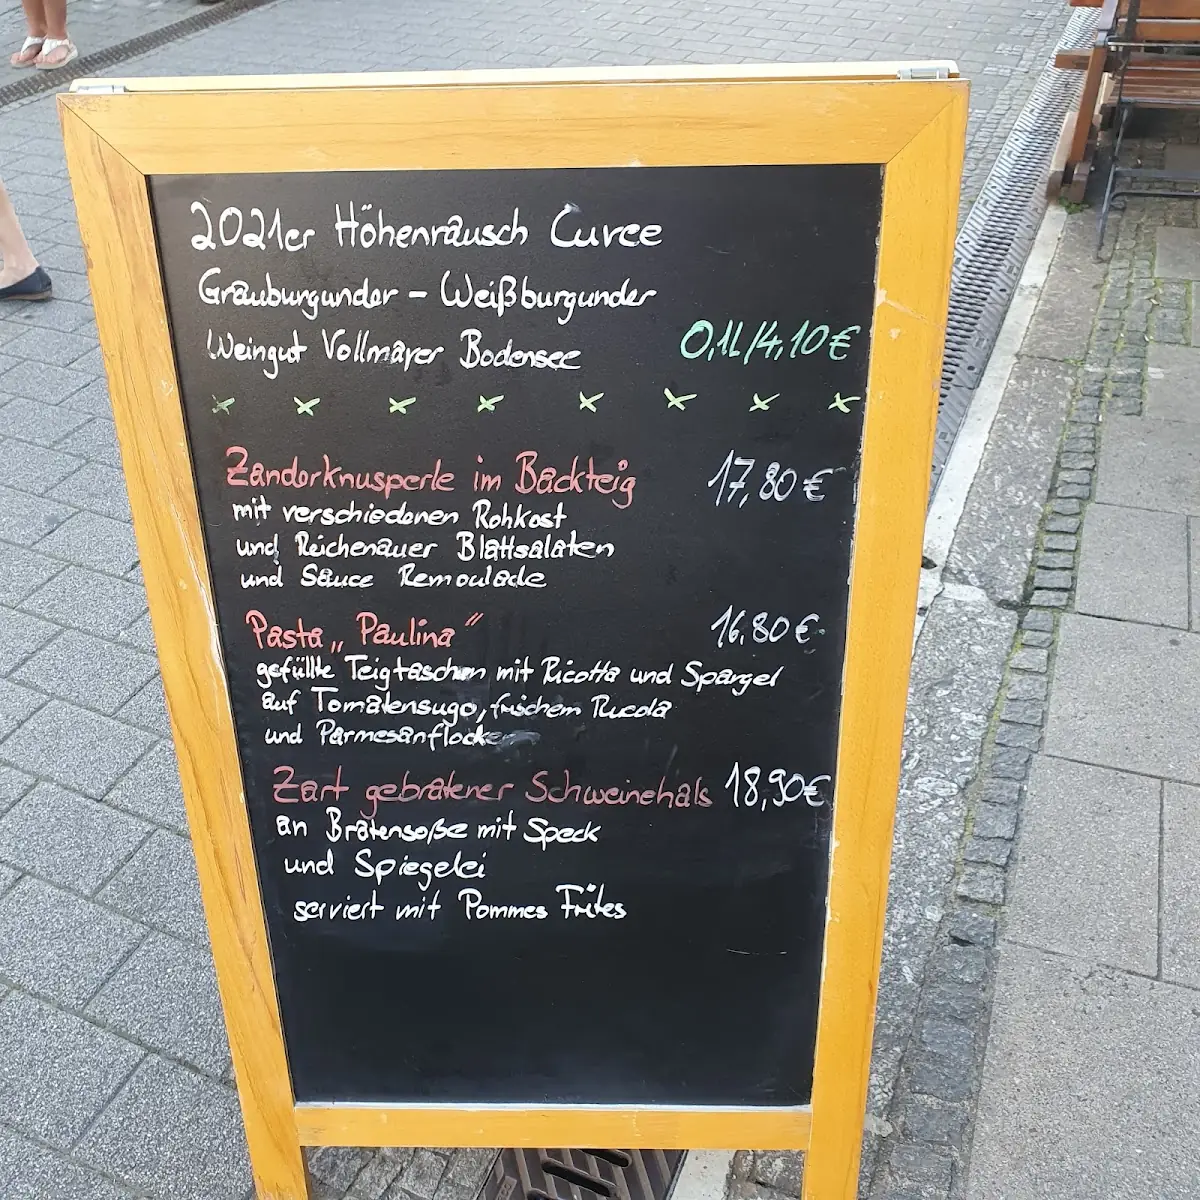 2021er Höhenrausch Cuvee
Grauburgunder - Weißburgunder
Weingut Vollmayer Bodensee 0,1L/4,10€
x x x x x x x x
Zanderknusperle im Backteig 17,80€
mit verschiedenen Rohkost
und Reichenauer Blattsalaten
und Sauce Remoulade
Pasta „Paulina“ 16,80€
gefüllte Teigtaschen mit Ricotta und Spargel
auf Tomatensugo, frischem Rucola
und Parmesanflocken
Zart gebratener Schweinehals 18,90€
an Bratensoße mit Speck
und Spiegelei
serviert mit Pommes Frites